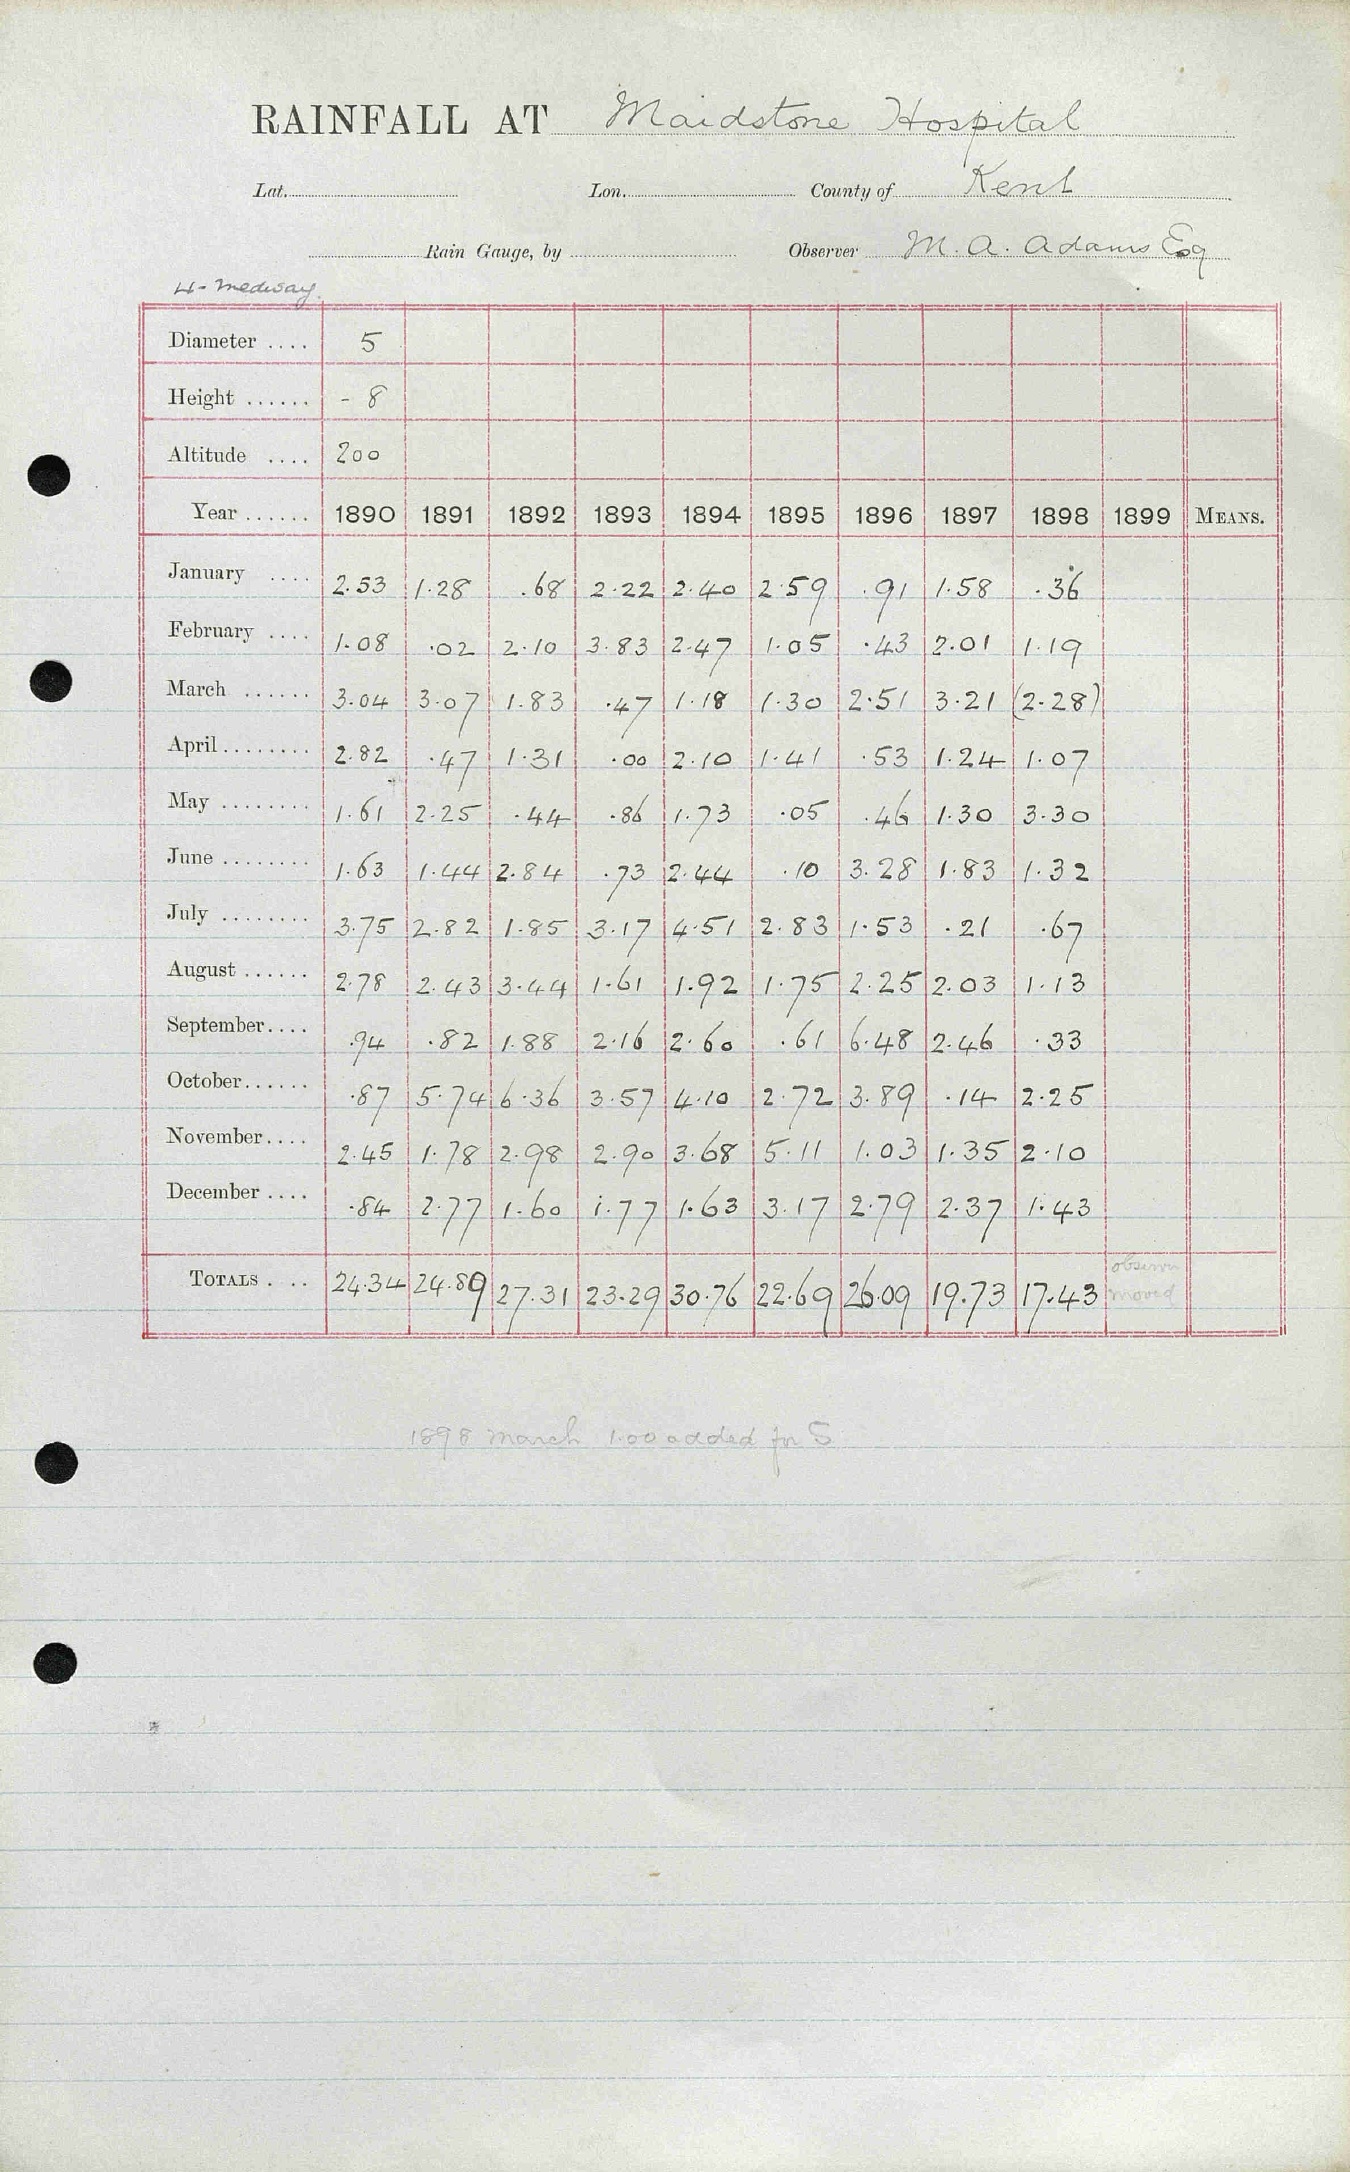 RAINFALL AT Maidstone Hospital
Lat. Lon. County of Kent
Rain Gauge, by Observer M. A. Adams Esq
4 - Medway
Diameter .... 5
Height ...... - 8
Altitude .... 200
Year ...... 1890 1891 1892 1893 1894 1895 1896 1897 1898 1899 MEANS.
January .... 2.53 1.28 .68 2.22 2.40 2.59 .91 1.58 .36
February .... 1.08 .02 2.10 3.83 2.47 1.05 .43 2.01 1.19
March ...... 3.04 3.07 1.83 .47 1.18 1.30 2.51 3.21 (2.28)
April ........ 2.82 .47 1.31 .00 2.10 1.41 .53 1.24 1.07
May ........ 1.61 2.25 .44 .86 1.73 .05 .46 1.30 3.30
June ........ 1.63 1.44 2.84 .73 2.44 .10 3.28 1.83 1.32
July ........ 3.75 2.82 1.85 3.17 4.51 2.83 1.53 .21 .67
August ...... 2.78 2.43 3.44 1.61 1.92 1.75 2.25 2.03 1.13
September.... .94 .82 1.88 2.16 2.60 .61 6.48 2.46 .33
October...... .87 5.74 6.36 3.57 4.10 2.72 3.89 .14 2.25
November.... 2.45 1.78 2.98 2.90 3.68 5.11 1.03 1.35 2.10
December .... .84 2.77 1.60 1.77 1.63 3.17 2.79 2.37 1.43
TOTALS . .. 24.34 24.89 27.31 23.29 30.76 22.69 26.09 19.73 17.43 observer moved
1898 March 1.00 added for S